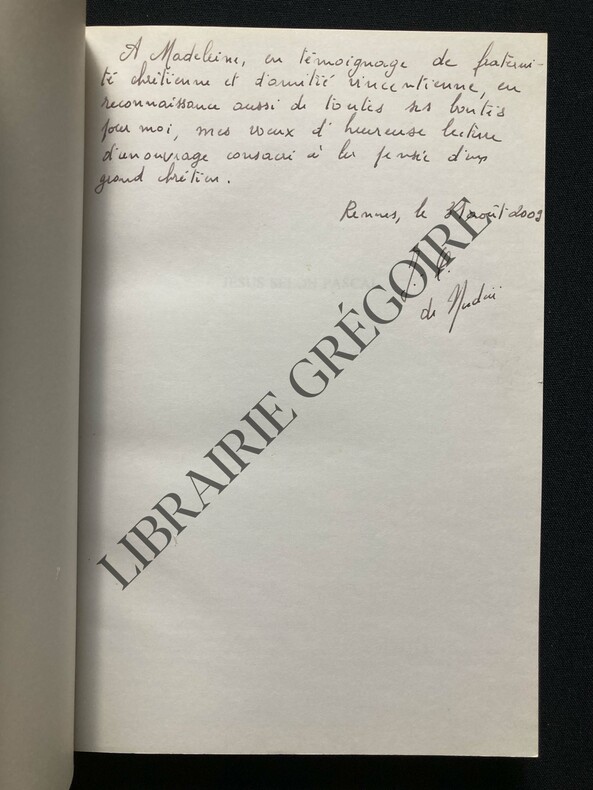 A Madeleine, en témoignage de fraterni-
té chrétienne et d'amitié vincentienne, en
reconnaissance aussi de toutes ses bontés
pour moi, mes voeux d'heureuse lecture
d'un ouvrage consacré à la pensée d'un
grand chrétien.
Rennes, le août 2009
de
JESUS SELON PASCAL
LIBRAIRIE GRÉGOIRE